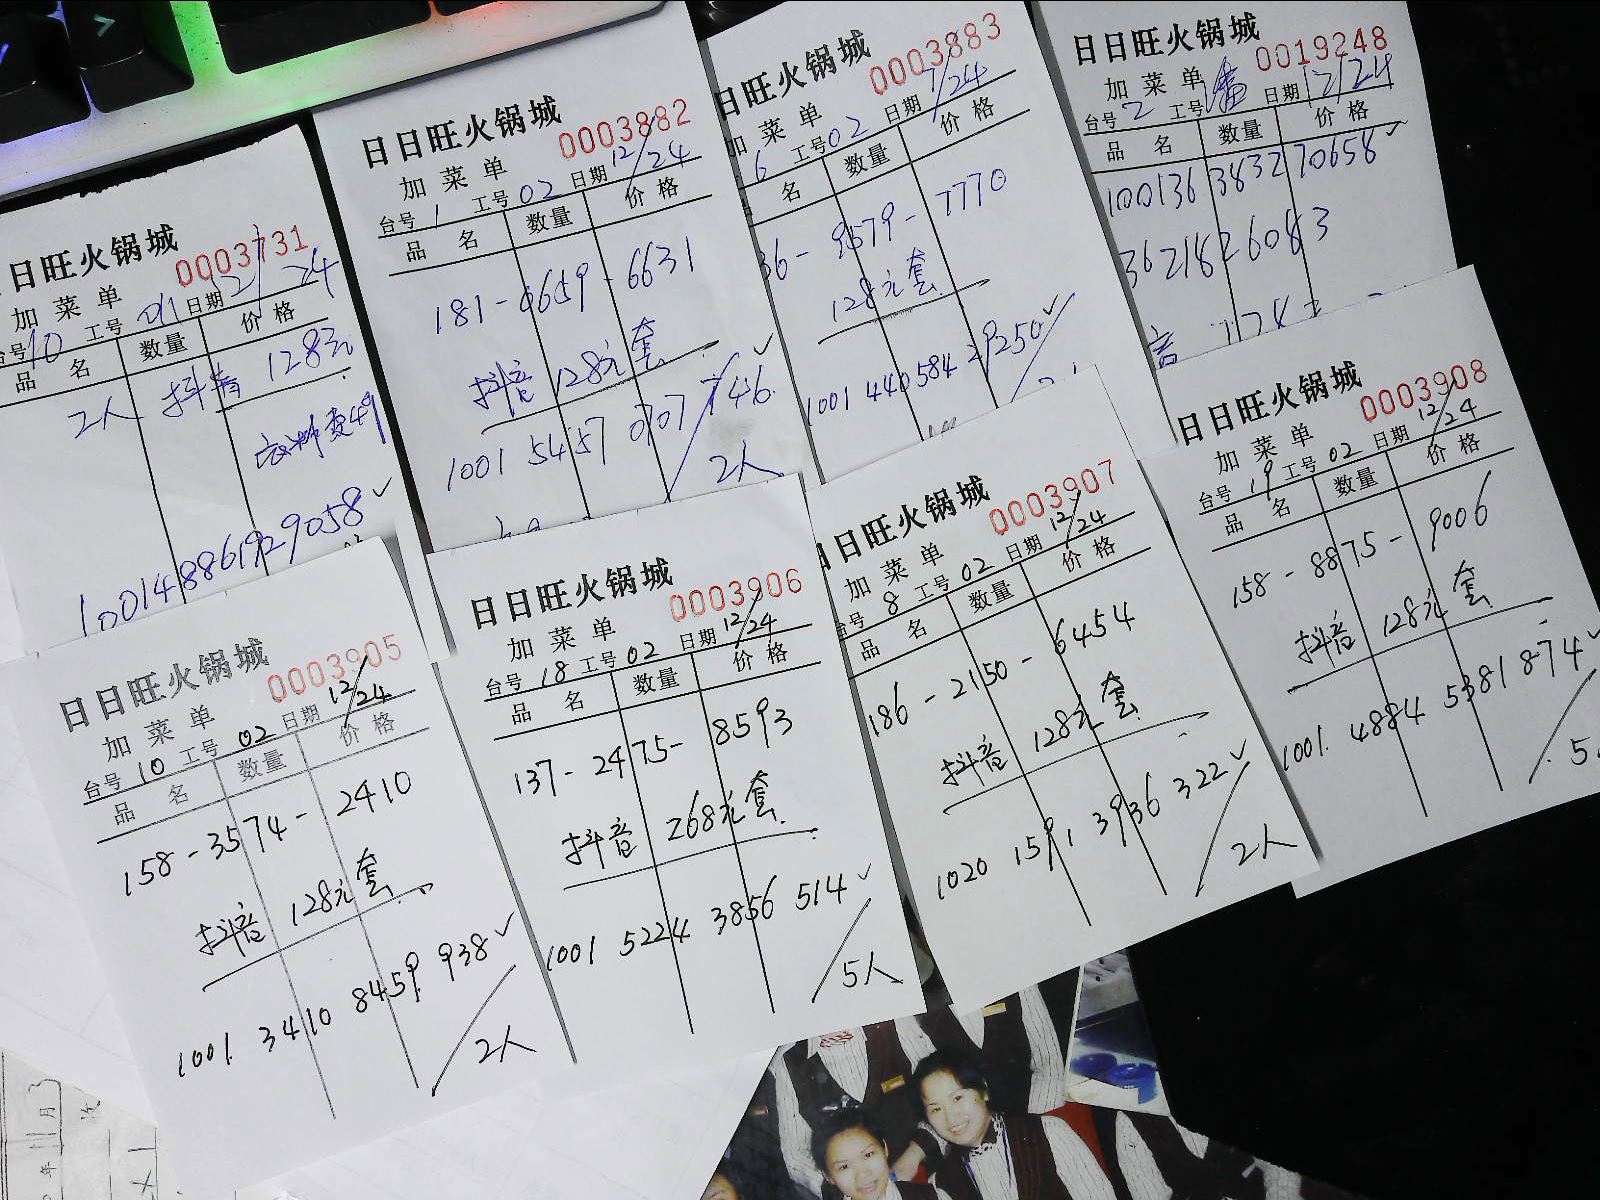 日日旺火锅城 0003731
加菜单
台号 10 工号 01 日期 12/24
品名 数量 价格
2人 抖音 128元
衣沙费4个
100148861929058 ✓
日日旺火锅城 0003882
加菜单
台号 1 工号 02 日期 12/24
品名 数量 价格
181-6659-6631
抖音 128元套
1001 5457 0707 746 ✓
2人
日旺火锅城 0003883
加菜单
6 工号 02 日期 1/24
名 数量 价格
36-9579-7770
128元套
1001 440584 29250 ✓
日日旺火锅城 0019248
加菜单
台号 2 工号 日期 12/24
品名 数量 价格
100136 3832 70658 ✓
36218 26083
音
日日旺火锅城 0003905
加菜单
台号 10 工号 02 日期 12/24
品名 数量 价格
158-3574-2410
抖音 128元套
1001. 3410 8459 938 ✓
2人
日日旺火锅城 0003906
加菜单
台号 18 工号 02 日期 12/24
品名 数量 价格
137-2475-8593
抖音 268元套
1001 5224 3856 514 ✓
5人
日日旺火锅城 0003907
加菜单
台号 8 工号 02 日期 12/24
品名 数量 价格
186-2150-6454
抖音 128元套
1020 1591 3936 322 ✓
2人
日日旺火锅城 0003908
加菜单
台号 19 工号 02 日期 12/24
品名 数量 价格
158-8875-9006
抖音 128元套
1001. 4884 5381 874 ✓
5
年 11 月 3
次
×1